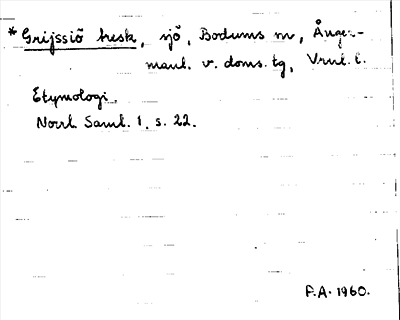 * Grijssiö tresk, sjö, Bodums sn, Ånger-
manl. v. doms. tg, Vrnl. l.
Etymologi.
Norrl. Saml. 1. s. 22.
F.A. 1960.